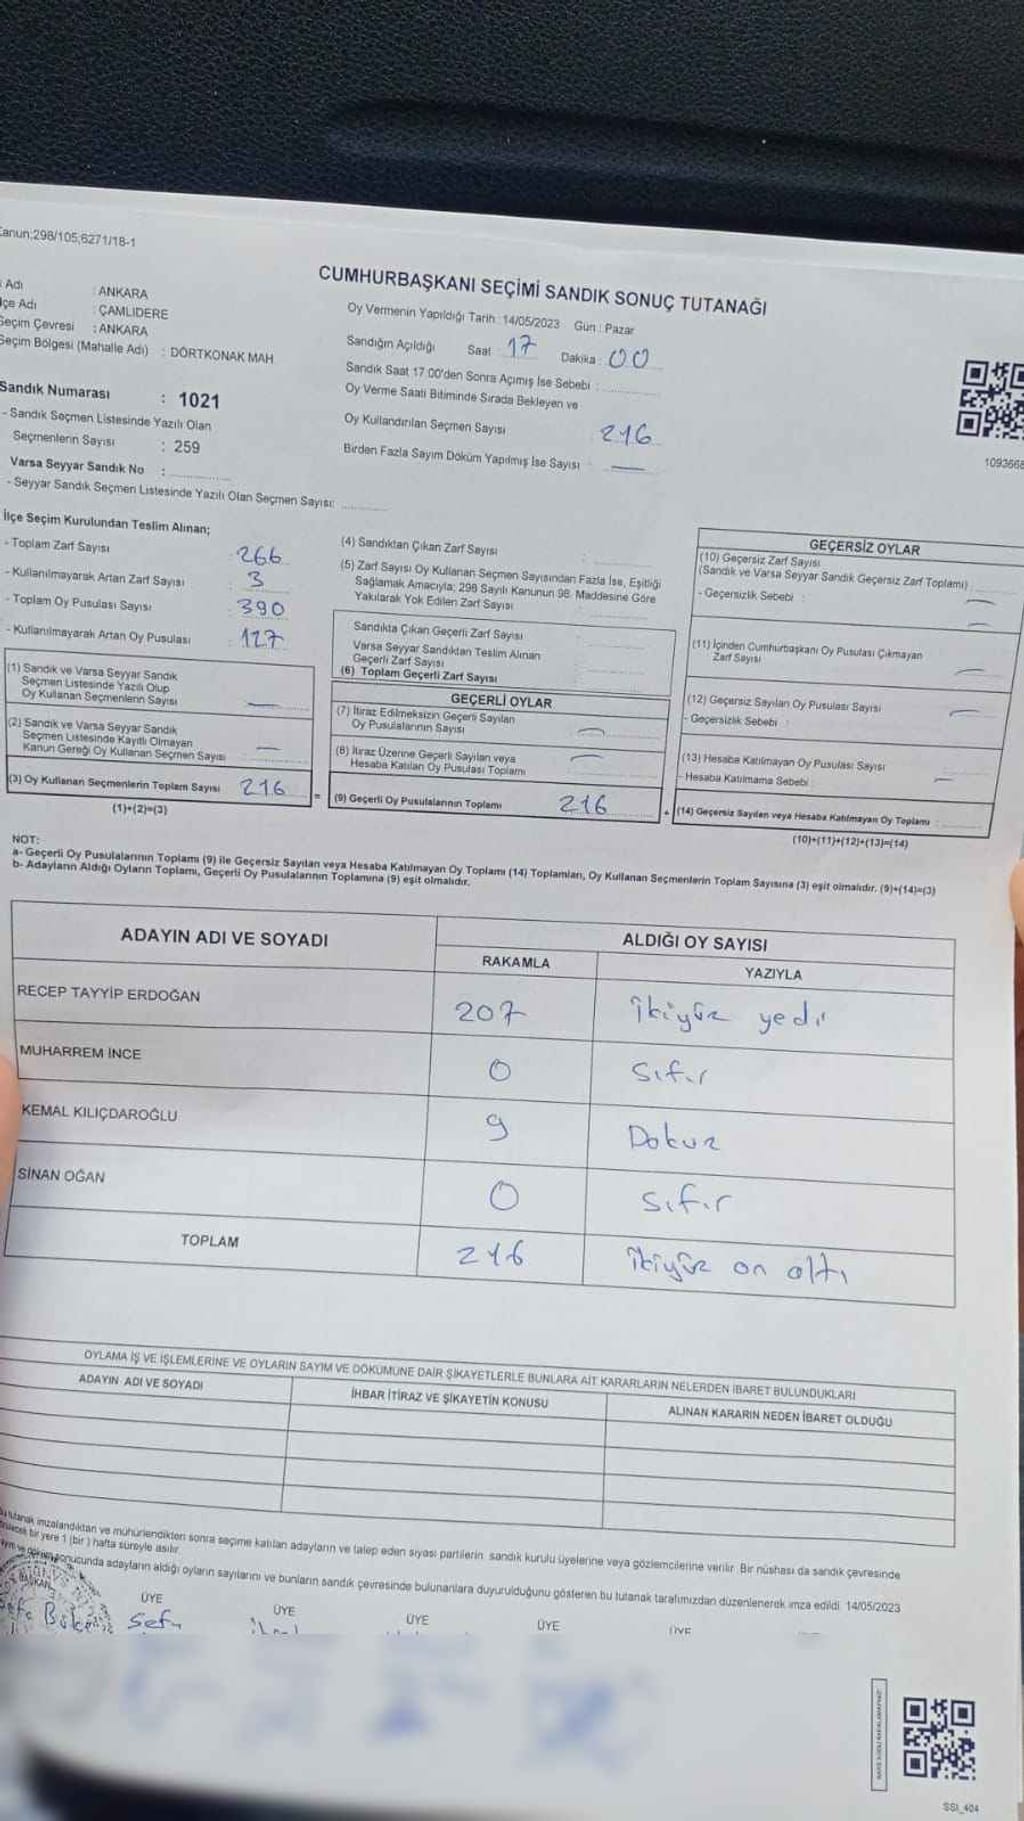 Kanun;298/105;6271/18-1
CUMHURBAŞKANI SEÇİMİ SANDIK SONUÇ TUTANAĞI
Adı : ANKARA
İlçe Adı : ÇAMLIDERE
Seçim Çevresi : ANKARA
Seçim Bölgesi (Mahalle Adı) : DÖRTKONAK MAH
Sandık Numarası : 1021
- Sandık Seçmen Listesinde Yazılı Olan
Seçmenlerin Sayısı : 259
Varsa Seyyar Sandık No :
- Seyyar Sandık Seçmen Listesinde Yazılı Olan Seçmen Sayısı:
Oy Vermenin Yapıldığı Tarih : 14/05/2023 Gün : Pazar
Sandığın Açıldığı Saat : 17 Dakika : 00
Sandık Saat 17:00'den Sonra Açımış İse Sebebi :
Oy Verme Saati Bitiminde Sırada Bekleyen ve
Oy Kullandırılan Seçmen Sayısı 216
Birden Fazla Sayım Döküm Yapılmış İse Sayısı —
1093668
İlçe Seçim Kurulundan Teslim Alınan;
- Toplam Zarf Sayısı 266
- Kullanılmayarak Artan Zarf Sayısı 3
- Toplam Oy Pusulası Sayısı 390
- Kullanılmayarak Artan Oy Pusulası 127
(1) Sandık ve Varsa Seyyar Sandık
Seçmen Listesinde Yazılı Olup
Oy Kullanan Seçmenlerin Sayısı —
(2) Sandık ve Varsa Seyyar Sandık
Seçmen Listesinde Kayıtlı Olmayan
Kanun Gereği Oy Kullanan Seçmen Sayısı —
(3) Oy Kullanan Seçmenlerin Toplam Sayısı 216
(1)+(2)=(3)
(4) Sandıktan Çıkan Zarf Sayısı
(5) Zarf Sayısı Oy Kullanan Seçmen Sayısından Fazla İse, Eşitliği
Sağlamak Amacıyla; 298 Sayılı Kanunun 98. Maddesine Göre
Yakılarak Yok Edilen Zarf Sayısı
Sandıkta Çıkan Geçerli Zarf Sayısı
Varsa Seyyar Sandıktan Teslim Alınan
Geçerli Zarf Sayısı
(6) Toplam Geçerli Zarf Sayısı
GEÇERLİ OYLAR
(7) İtiraz Edilmeksizin Geçerli Sayılan
Oy Pusulalarının Sayısı —
(8) İtiraz Üzerine Geçerli Sayılan veya
Hesaba Katılan Oy Pusulası Toplamı —
= (9) Geçerli Oy Pusulalarının Toplamı 216
GEÇERSİZ OYLAR
(10) Geçersiz Zarf Sayısı
(Sandık ve Varsa Seyyar Sandık Geçersiz Zarf Toplamı)
- Geçersizlik Sebebi : —
(11) İçinden Cumhurbaşkanı Oy Pusulası Çıkmayan
Zarf Sayısı —
(12) Geçersiz Sayılan Oy Pusulası Sayısı —
- Geçersizlik Sebebi :
(13) Hesaba Katılmayan Oy Pusulası Sayısı —
- Hesaba Katılmama Sebebi
+ (14) Geçersiz Sayılan veya Hesaba Katılmayan Oy Toplamı :
(10)+(11)+(12)+(13)=(14)
NOT:
a- Geçerli Oy Pusulalarının Toplamı (9) ile Geçersiz Sayılan veya Hesaba Katılmayan Oy Toplamı (14) Toplamları, Oy Kullanan Seçmenlerin Toplam Sayısına (3) eşit olmalıdır. (9)+(14)=(3)
b- Adayların Aldığı Oyların Toplamı, Geçerli Oy Pusulalarının Toplamına (9) eşit olmalıdır.
ADAYIN ADI VE SOYADI ALDIĞI OY SAYISI
RAKAMLA YAZIYLA
RECEP TAYYİP ERDOĞAN 207 ikiyüz yedi
MUHARREM İNCE 0 sıfır
KEMAL KILIÇDAROĞLU 9 Dokuz
SİNAN OĞAN 0 sıfır
TOPLAM 216 ikiyüz on altı
OYLAMA İŞ VE İŞLEMLERİNE VE OYLARIN SAYIM VE DÖKÜMÜNE DAİR ŞİKAYETLERLE BUNLARA AİT KARARLARIN NELERDEN İBARET BULUNDUKLARI
ADAYIN ADI VE SOYADI İHBAR İTİRAZ VE ŞİKAYETİN KONUSU ALINAN KARARIN NEDEN İBARET OLDUĞU
Bu tutanak imzalandıktan ve mühürlendikten sonra seçime katılan adayların ve talep eden siyasi partilerin sandık kurulu üyelerine veya gözlemcilerine verilir. Bir nüshası da sandık çevresinde
bir yere 1 (bir) hafta süreyle asılır.
sonucunda adayların aldığı oyların sayılarını ve bunların sandık çevresinde bulunanlara duyurulduğunu gösteren bu tutanak tarafımızdan düzenlenerek imza edildi. 14/05/2023
BAŞKAN ÜYE ÜYE ÜYE ÜYE ÜYE
SSİ_404